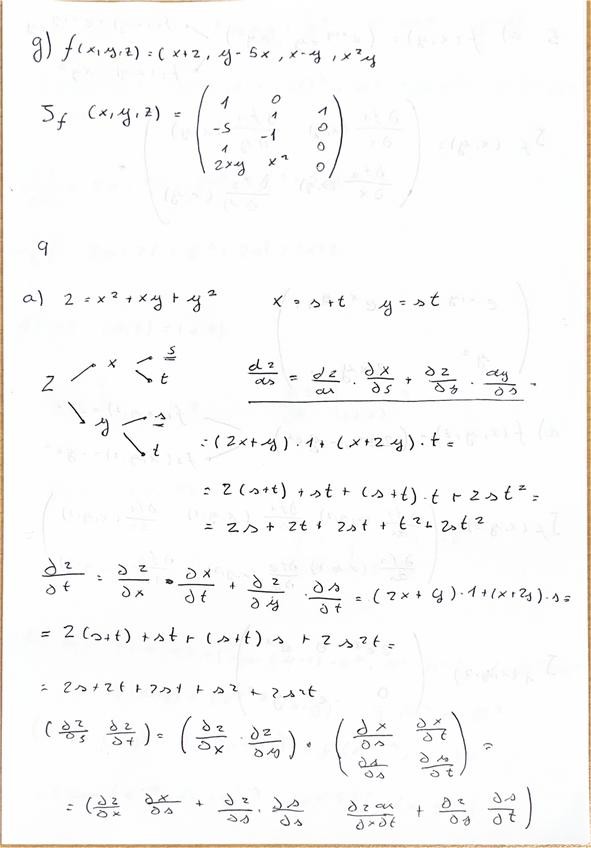 g) f(x,y,z) = (x+z, y-5x, x-y, x²y
J_f (x,y,z) = ( 1 0 1
-5 1 0
1 -1 0
2xy x² 0 )
9
a) z = x² + xy + y² x = s+t y = st
z x s t
y s t
dz/ds = dz/dx · ∂x/∂s + ∂z/∂y · dy/∂s
= (2x+y) · 1 + (x+2y) · t =
= 2(s+t) + st + (s+t) · t + 2st² =
= 2s + 2t + 2st + t² + 2st²
∂z/∂t = ∂z/∂x · ∂x/∂t + ∂z/∂y · ∂s/∂t = (2x+y) · 1 + (x+2y) · s =
= 2(s+t) + st + (s+t) s + 2s²t =
= 2s + 2t + 2st + s² + 2s²t
(∂z/∂s ∂z/∂t) = (∂z/∂x · ∂z/∂y) · ( ∂x/∂s ∂x/∂t
∂s/∂s ∂s/∂t ) =
= (∂z/∂x ∂x/∂s + ∂z/∂s · ∂s/∂s ∂z ∂x/∂x∂t + ∂z/∂y ∂s/∂t)